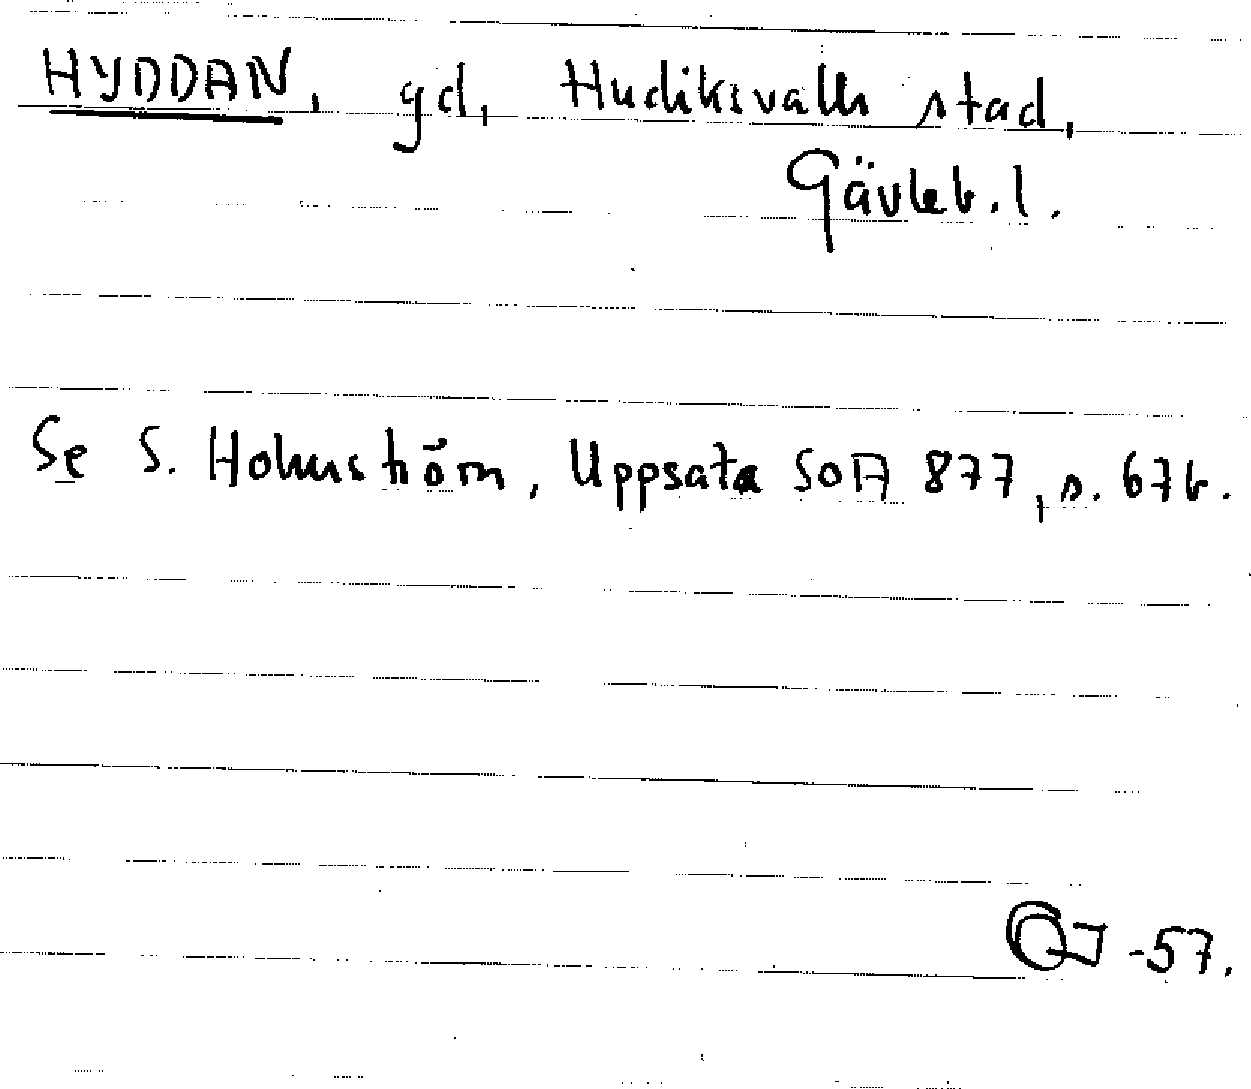 HYDDAN, gd, Hudiksvalls stad,
Gävleb. l.
Se S. Holmström, Uppsata SOA 877, s. 67b.
-57.